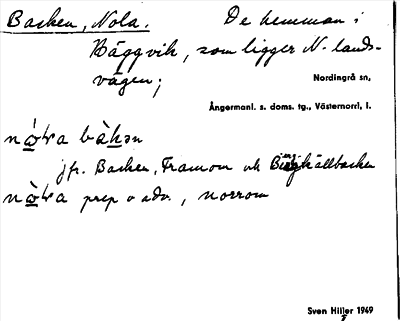 Backen, Nola. De hemman i
Häggvik, som ligger N. lands-
vägen;
Nordingrå sn,
Ångermanl. s. doms. tg., Västernorrl, l.
bàkən
jfr. Backen, Framom och
prep o adv., norrom
Sven Hiljer 1949